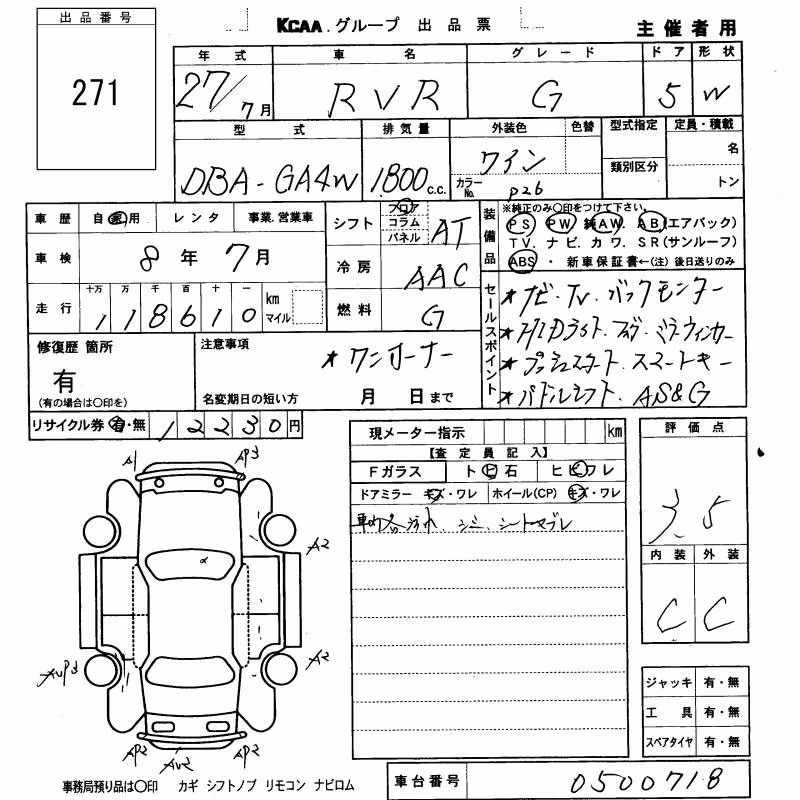 出品番号
271
KCAA.グループ 出品票
主催者用
年式 車名 グレード ドア 形状
27/7月 RVR G 5 W
型式 排気量 外装色 色替 型式指定 定員・積載
DBA-GA4W 1800c.c. ワイン 名
カラーNo. P26 類別区分 トン
車歴 自家用 レンタ 事業.営業車
シフト フロア コラム パネル AT
装備品 ※純正のみ○印をつけて下さい。
PS PW 純AW. AB(エアバック)
TV. ナビ. カワ. SR(サンルーフ)
ABS ・ 新車保証書←(注)後日送りのみ
車検 8年7月
冷房 AAC
走行 十万 万 千 百 十 一
118610 km マイル
燃料 G
セールスポイント
★ナビ・TV・バックモニター
★HIDライト・フォグ・ミラーウィンカー
★プッシュスタート・スマートキー
★パドルシフト. AS&G
修復歴 箇所
有
(有の場合は○印を)
注意事項
★ワンオーナー
名変期日の短い方 月 日まで
リサイクル券 有・無 12230円
現メーター指示 km
【査定員記入】
Fガラス ト ヒ 石 ヒビワレ
ドアミラー キズ・ワレ ホイール(CP) キズ・ワレ
シミ、シート
評価点
3.5
内装 外装
C C
A1 AP3
A2
A2
AP2 AP2
ジャッキ 有・無
工具 有・無
スペアタイヤ 有・無
事務局預り品は○印 カギ シフトノブ リモコン ナビロム
車台番号 0500718